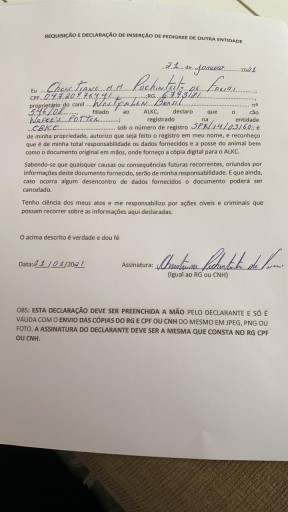 REQUISIÇÃO E DECLARAÇÃO DE INSERÇÃO DE PEDIGREE DE OUTRA ENTIDADE
21 de Janeiro 2021
Eu Christiane M.M Pachintato de Farias
CPF RG
proprietário do canil Westerlen Brasil, nº
546/08 filiado ao ALKC, declaro que o cão
Potter registrado na entidade
CBKC sob o número de registro SPN/14/03160; é
de minha propriedade, autorizo que seja feito o registro em meu nome, e reconheço
que é de minha total responsabilidade os dados fornecidos e a posse do animal bem
como o documento original em mãos, onde forneço a cópia digital para o ALKC.
Sabendo-se que quaisquer causas ou consequências futuras recorrentes, oriundos por
informações deste documento fornecido, serão de minha responsabilidade. E que ainda,
caso ocorra algum desencontro de dados fornecidos o documento poderá ser
cancelado.
Tenho ciência dos meus atos e me responsabilizo por ações cíveis e criminais que
possam recorrer sobre as informações aqui declaradas.
O acima descrito é verdade e dou fé
Data: 21/01/2021 Assinatura:
(Igual ao RG ou CNH)
OBS: ESTA DECLARAÇÃO DEVE SER PREENCHIDA A MÃO PELO DECLARANTE E SÓ É
VÁLIDA COM O ENVIO DAS CÓPIAS DO RG E CPF OU CNH DO MESMO EM JPEG, PNG OU
FOTO. A ASSINATURA DO DECLARANTE DEVE SER A MESMA QUE CONSTA NO RG CPF
OU CNH.